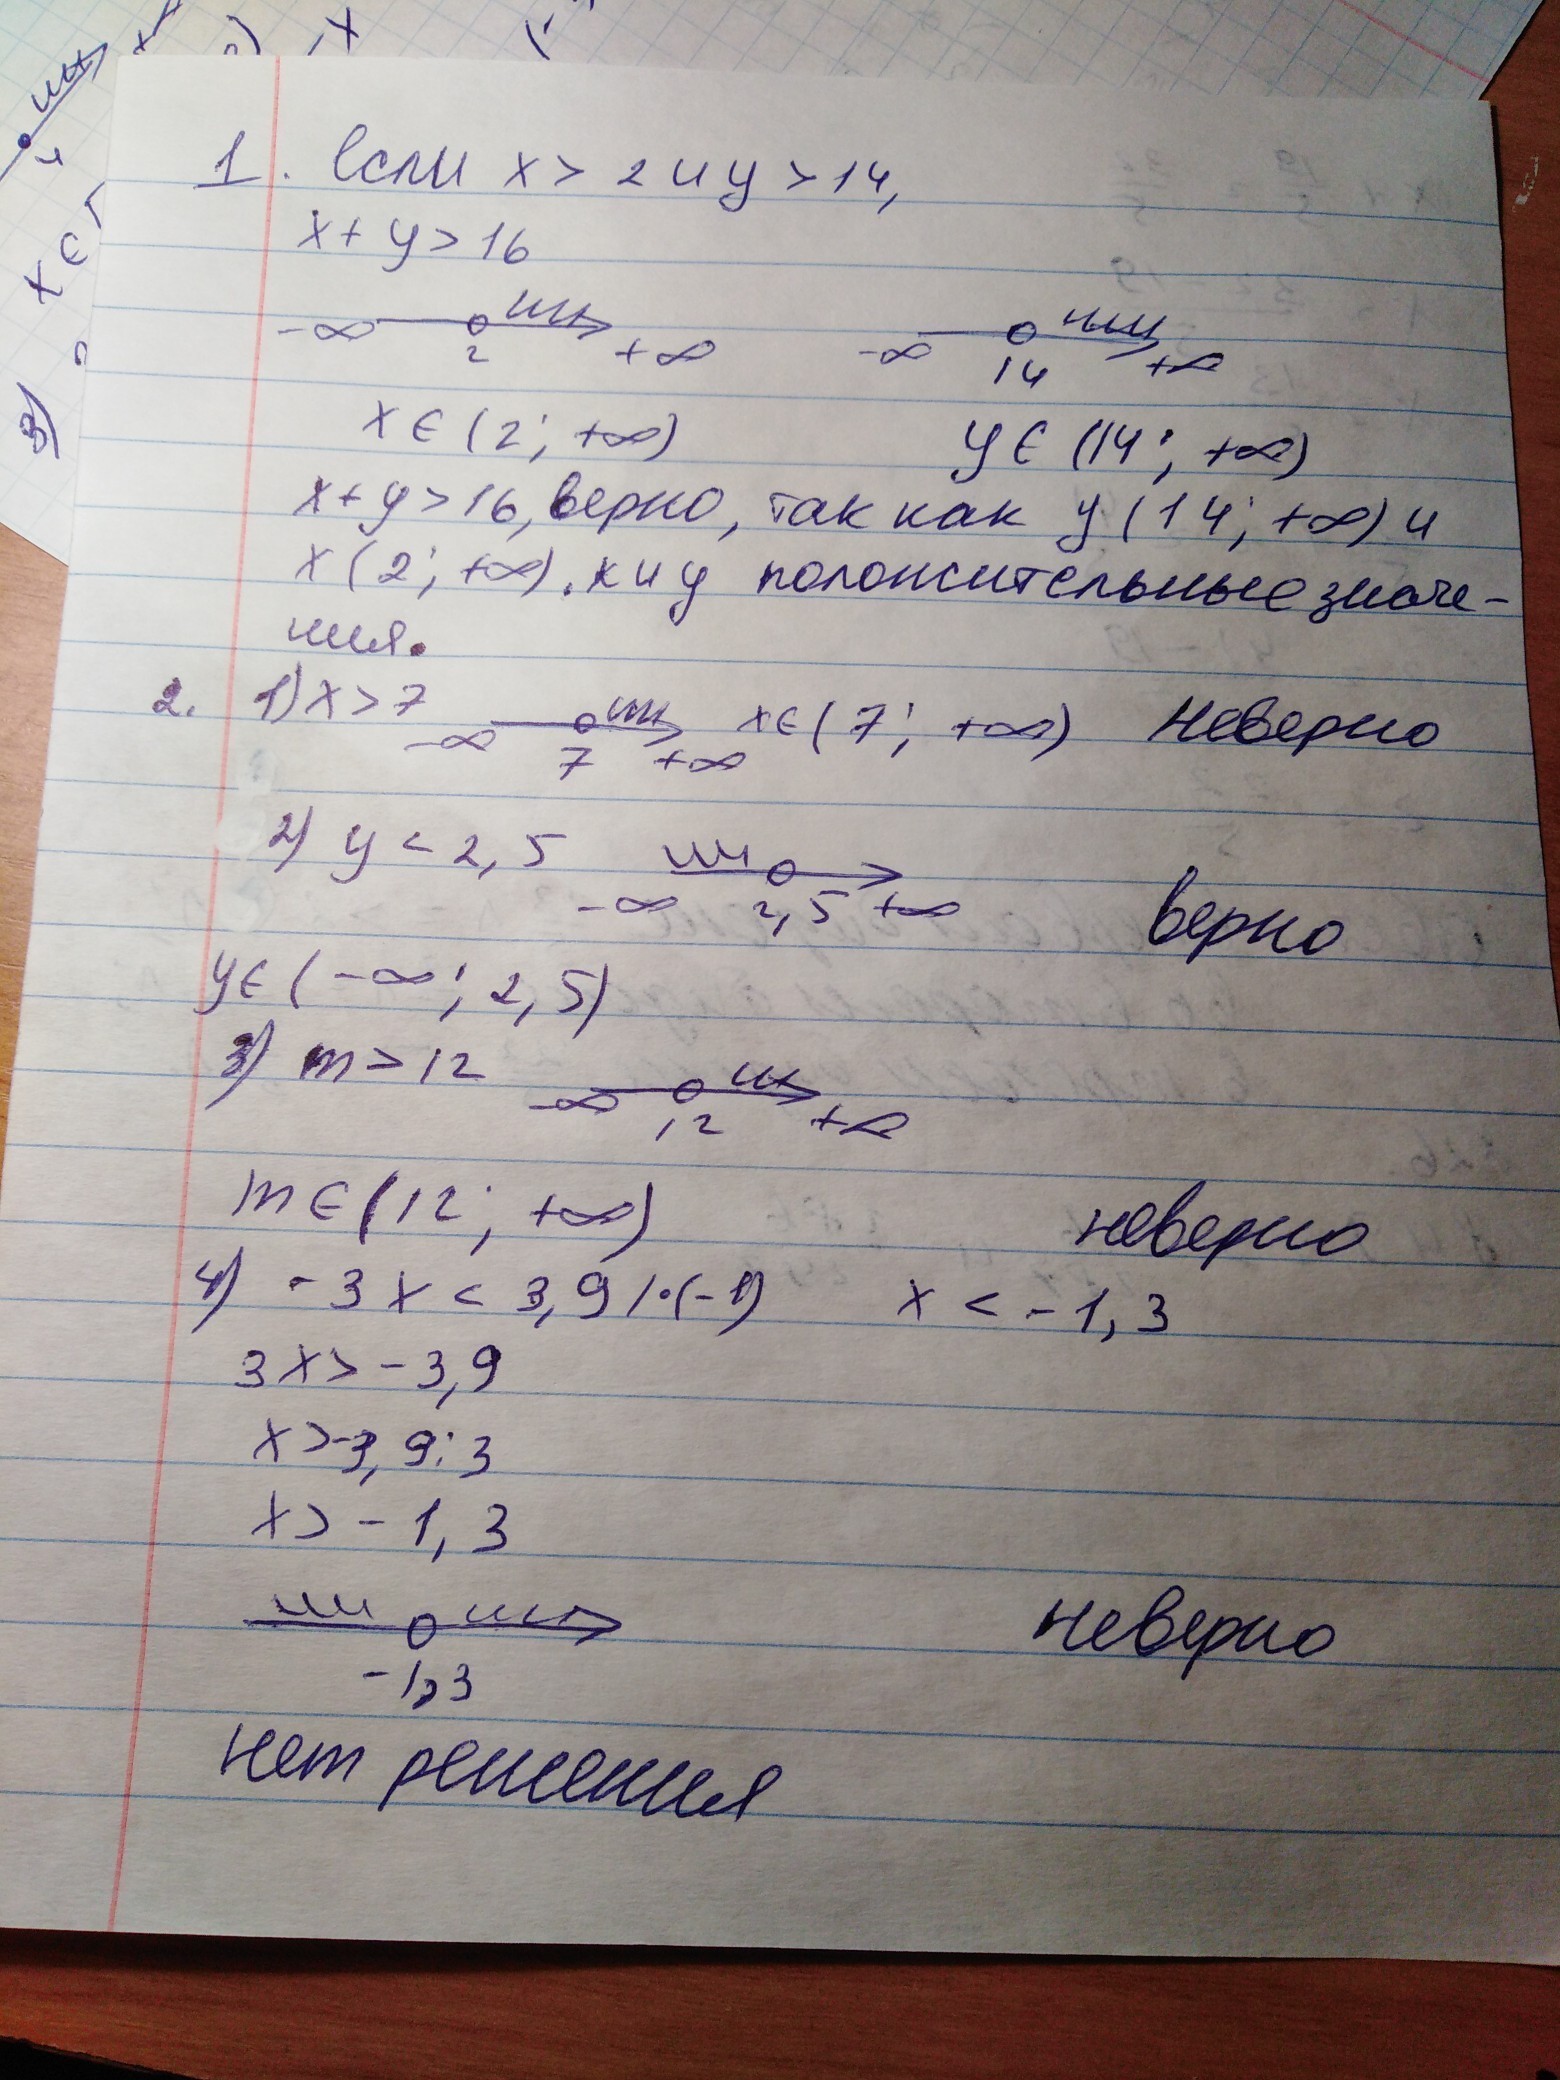 1. Если x > 2 и y > 14,
x + y > 16
-∞ 2 +∞ -∞ 14 +∞
x ∈ (2; +∞) y ∈ (14; +∞)
x + y > 16, верно, так как y (14; +∞) и
x (2; +∞). x и y положительные значе-
ния.
2. 1) x > 7 -∞ 7 +∞ x ∈ (7; +∞) Неверно
2) y < 2,5 -∞ 2,5 +∞ верно
y ∈ (-∞; 2,5)
3) m > 12 -∞ 12 +∞
m ∈ (12; +∞) неверно
4) -3x < 3,9 /·(-1) x < -1,3
3x > -3,9
x > -3,9:3
x > -1,3
-1,3 неверно
нет решения
x ∈
3)